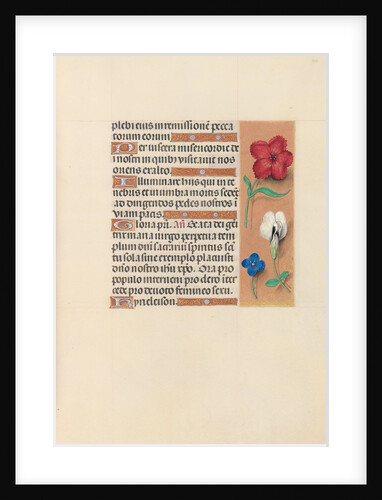 plebi eius in remissionē pecca
torum eorum.
Per viscera misericordie de
i nostri in quibꝯ visitauit nos
oriens ex alto.
Illuminare his qui in te
nebris et in umbra mortis sedēt
ad dirigendos pedes nostros ī
viam pacis.
Gloria pr̄i. añ. Beata dei ge
trix maria virgo perpetua tem
plum dn̄i sacrariū spiritus sc̄i
tu sola sine exemplo placuisti
dn̄o nostro ihū xp̄o. Ora pro
populo interueni pro clero īter
cede pro deuoto femineo sexu.
Kyrieleison.